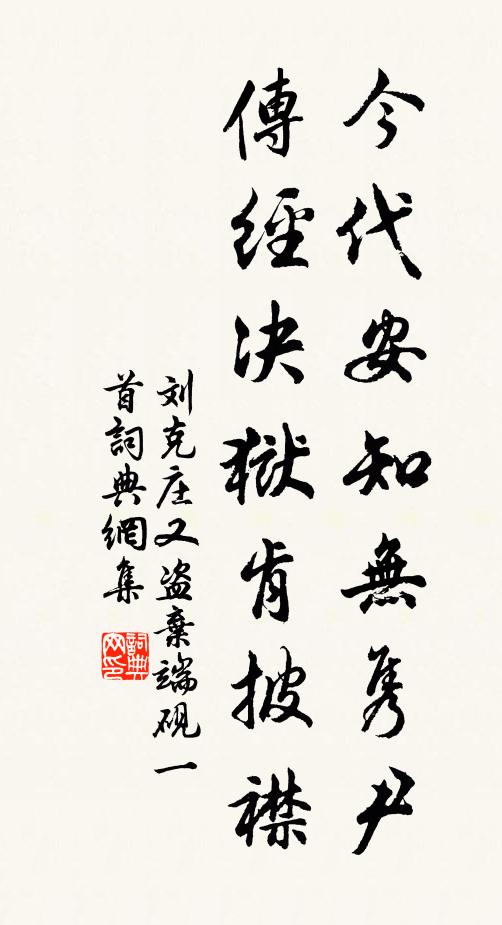 今代安知無隽尹
傳經决獄肯披襟
刘克庄又盗棄端硯一
首詞典網集
詞典网印